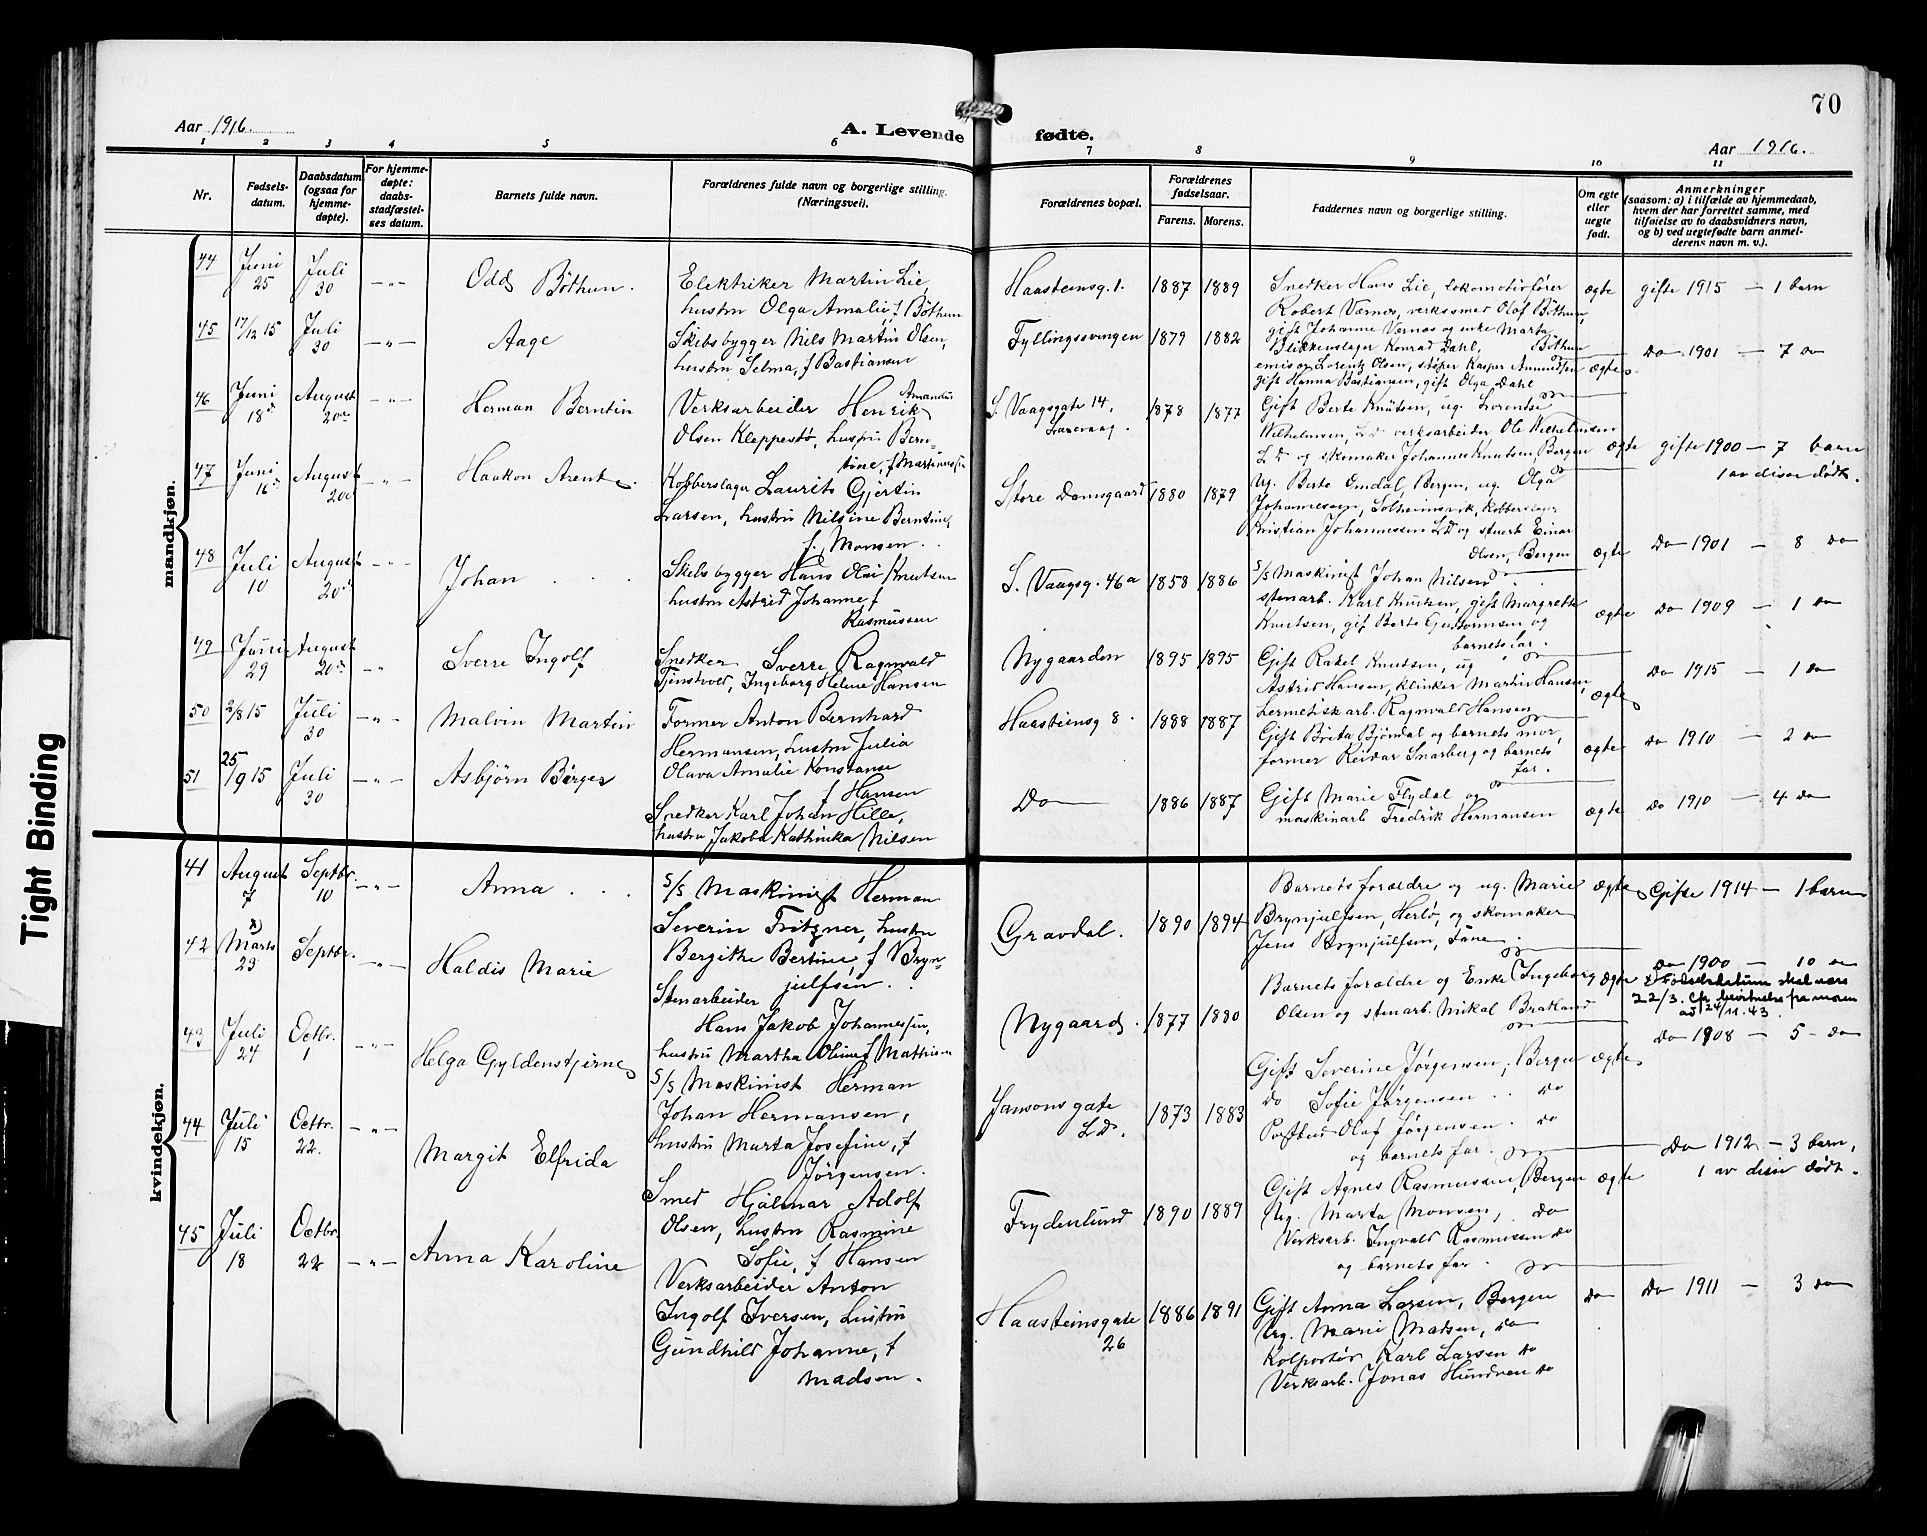 70
Aar 1916.
A. Levende fødte.
Aar 1916.
1 2 3 4 5 6 7 8 9 10 11
Nr.
Fødsels-
datum.
Daabsdatum
(ogsaa for
hjemme-
døpte).
For hjemme-
døpte:
daabs-
stadfæstel-
ses datum.
Barnets fulde navn.
Forældrenes fulde navn og borgerlige stilling.
(Næringsvei).
Forældrenes bopæl.
Forældrenes
fødselsaar.
Farens. Morens.
Faddernes navn og borgerlige stilling.
Om egte
eller
uegte
født.
Anmerkninger
(saasom: a) i tilfælde av hjemmedaab,
hvem der har forrettet samme, med
tilføielse av to daabsvidners navn,
og b) ved uegtefødte barn anmel-
derens navn m. v.).
mandkjøn.
44 Juni 25 Juli 30 -"- Odd Böthun.
Elektriker Martin Lie,
hustru Olga Amalie, f Böthun
Haasteinsg. 1. 1887 1889
Snedker Hans Lie, lokomotivfører
Robert Værnes, verksmed Olaf Böthun,
gift Johanne Vernes og enke Marta
Böthun
ægte gifte 1915 — 1 barn
45 17/12 15 Juli 30 -"- Aage
Skibsbygger Nils Martin Olsen,
hustru Selma, f Bastiansen
Fyllingssvingen 1879 1882
Blikkenslager Konrad Dahl,
Lorentz Olsen, støper Kasper Amundsen
gift Hanna Bastiansen, gift Olga Dahl
ægte Do 1901 — 7 do
46 Juni 18d August 20de -"- Herman Berntin
Verksarbeider Henrik Amandus
Olsen Kleppestø, hustru Bern-
tine, f Martinussen
S. Vaagsgate 14,
Laxevaag. 1878 1877
Gift Berte Knutsen, ug. Lorentse
Wilhelmsen, LD verksarbeider Ole Wilhelmsen
LD og skomaker Johannes Knutsen, Bergen
ægte gifte 1900 — 7 barn
1 av disse dødt.
47 Juni 16d August 20de -"- Haakon Arent
Kobberslager Laurits Gjertin
Larsen, hustru Nilsine Berntine,
f. Monsen.
Store Damsgaard 1880 1879
Ug. Berte Emdal, Bergen, ug. Olga
Johannessen, Solheimsvik, kobberslager
Kristian Johannessen LD og stuert Einar
Olsen, Bergen
ægte Do 1901 — 8 do
48 Juli 10 August 20de -"- Johan
Skibsbygger Hans Olai Knutsen
hustru Astrid Johanne f
Rasmussen
S. Vaagsg. 46a 1858 1886
S/S Maskinist Johan Nilsen
stenarb. Karl Knutsen, gift Margrethe
Knutsen, gif Berte Guttormsen og
barnets far.
ægte Do 1909 — 1 do
49 Juni 29 August 20de -"- Sverre Ingolf
Snedker Sverre Ragnvald
Tjenstvold, Ingeborg Helene Hansen
Nygaarden 1895 1895
Gift Rakel Knutsen, ug
Astrid Hansen, klinker Martin Hansen,
hermetiskarb. Ragnvald Hansen
ægte Do 1915 — 1 do
50 2/8 15 Juli 30 -"- Malvin Martin
Former Anton Bernhard
Hermansen, hustru Julia
Olava Amalie Konstanse
f Hansen
Haasteinsg 8. 1888 1887
Gift Brita Bjöndal og barnets mor,
former Reidar Snarberg og barnets
far.
ægte Do 1910 — 2 do
51 25/9 15 Juli 30 -"- Asbjörn Börges
Snedker Karl Johan Hille,
hustru Jakobe Kathinka Nilsen
Do 1886 1887
Gift Marie Flydal og
maskinarb Fredrik Hermansen
ægte Do 1910 — 4 do
kvindekjøn.
41 August 7 Septbr. 10 -"- Anna
S/S Maskinist Herman
Severin Fritzner, hustru
Bergithe Bertine, f Bryn-
julfsen.
Gravdal. 1890 1894
Barnets forældre og ug. Marie
Brynjulfsen, Herlø, og skomaker
Jens Brynjulfsen, Fane.
ægte Gifte 1914 — 1 barn
42 x) Marts 23 Septbr. -"- Haldis Marie
Stenarbeider
Hans Jakob Johannessen,
hustru Martha Oline f Mathisen
Nygaard. 1877 1880
Barnets forældre og Enke Ingeborg
Olsen og stenarb. Mikal Bratlund
ægte Do 1900 — 10 do
x Fødselsdatum skal være
22/3. Cfr. bevitnelse fra moren
ad 24/11.43.
43 Juli 24 Octbr. 1 -"- Helga Gyldenstjerne
S/S Maskinist Herman
Johan Hermansen,
hustru Marta Josefine, f
Jørgensen.
Jansonsgate
LD. 1873 1883
Gift Severine Jørgensen, Bergen
do Sofie Jørgensen do
Postbud Olaf Jørgensen. do
og barnets far.
ægte Do 1908 — 5 do
44 Juli 15 Octbr. 22. -"- Margit Elfrida
Smed Hjalmar Adolf
Olsen, hustru Rasmine
Sofie, f Hansen
Frydenlund 1890 1889
Gift Agnes Rasmussen, Bergen
Ug. Marta Monsen, do
Verksarb. Ingvald Rasmussen do
og barnets far.
ægte Do 1912 — 3 barn,
1 av disse dødt.
45 Juli 18 Octbr. 22 -"- Anna Karoline
Verksarbeider Anton
Ingolf Iversen, hustru
Gundhild Johanne, f
Madsen.
Haasteinsgate
26 1886 1891
Gift Anna Larsen, Bergen
Ug. Marie Madsen, do
Kolportør Karl Larsen do
Verksarb. Jonas Hundven do
do Do 1911 — 3 do
Tight Binding